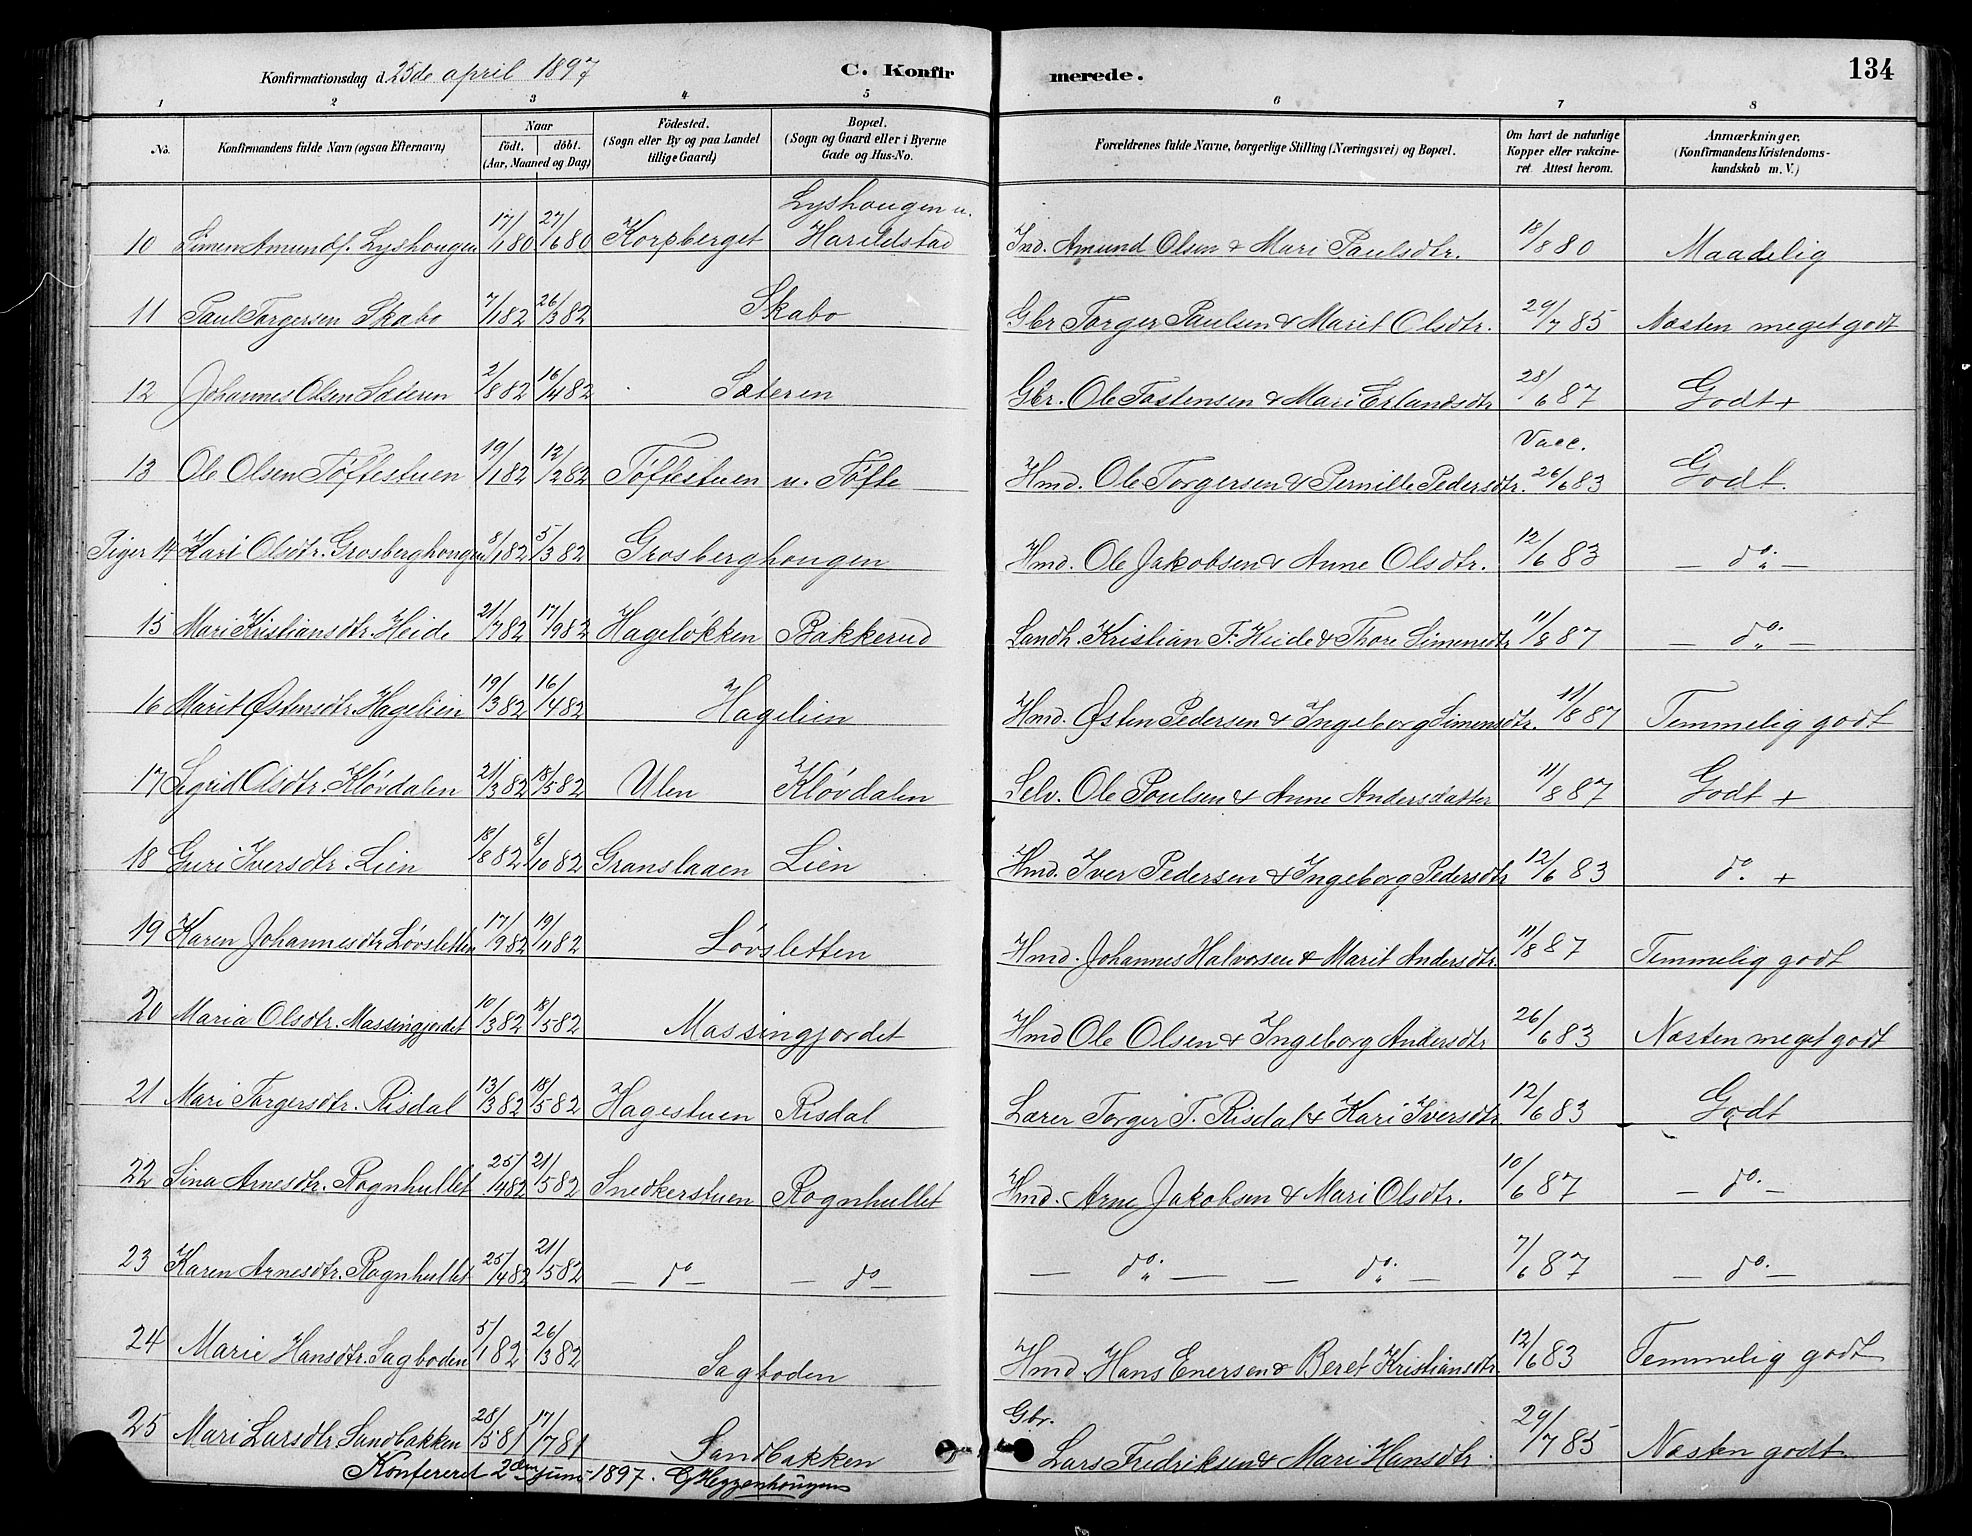 Konfirmationsdag d. 25de april 1897 C. Konfir merede. 134
1 2 3 4 5 6 7 8
No. Konfirmandens fulde Navn (ogsaa Efternavn) Naar födt. döbt. (Aar, Maaned og Dag) Födested. (Sogn eller By og paa Landet tillige Gaard) Bopæl. (Sogn og Gaard eller i Byerne Gade og Hus-No. Forældrenes fulde Navne, borgerlige Stilling (Næringsvei) og Bopæl. Om havt de naturlige Kopper eller vakcineret. Attest herom. Anmærkninger. (Konfirmandens Kristendomskundskab m. V.)
10 Simen Amunds. Lyshougen 17/1 80 27/6 80 Korpberget Lyshougen u. Harildstad Ind. Amund Olsen & Mari Paulsdtr. 18/8 80 Maadelig
11 Paul Torgersen Skabo 7/1 82 26/3 82 Skabo Gbr Torger Paulsen & Marit Olsdtr. 29/7 85 Næsten meget godt
12 Johannes Olsen Sæteren 2/8 82 16/4 82 Sæteren Gbr. Ole Tostensen & Mari Erlandsdtr 28/6 87 Godt +
13 Ole Olsen Tøftestuen 19/1 82 12/2 82 Tøftestuen u. Tøfte Hmd. Ole Torgersen & Pernille Pedersdtr. Vacc. 26/6 83 Godt.
Piger 14 Kari Olsdtr. Grosberghougen 8/1 82 5/3 82 Grosberghougen Hmd. Ole Jakobsen & Anne Olsdtr. 12/6 83 — do. —
15 Mari Kristiansdtr. Heide 21/7 82 17/9 82 Hageløkken Bakkerud Landh. Kristian F. Heide & Thore Simensdtr 11/8 87 — do. —
16 Marit Østensdtr. Hagelien 19/3 82 16/4 82 Hagelien Hmd. Østen Pedersen & Ingeborg Simensdtr. 11/8 87 Temmelig godt
17 Sigrid Olsdtr. Kløvdalen 21/3 82 18/5 82 Ulen Kløvdalen Selv. Ole Poulsen & Anne Andersdatter 11/8 87 Godt +
18 Guri Iversdtr. Lien 18/8 82 8/10 82 Granslaaen Lien Hmd. Iver Pedersen & Ingeborg Pedersdtr 12/6 83 do. +
19 Karen Johannesdtr Løvsletten 17/9 82 19/11 82 Løvsletten Hmd. Johannes Halvorsen & Marit Andersdtr. 11/8 87 Temmelig godt
20 Maria Olsdtr. Massingjordet 10/3 82 18/5 82 Massingjordet Hmd Ole Olsen & Ingeborg Andersdtr 26/6 83 Næsten meget godt
21 Mari Torgersdtr. Risdal 13/3 82 18/5 82 Hagestuen Risdal Lærer Torger T. Risdal & Kari Iversdtr. 12/6 83 Godt
22 Sina Arnesdtr. Rognhullet 25/4 82 21/5 82 Snedkerstuen Rognhullet Hmd. Arne Jakobsen & Mari Olsdtr. 10/6 87 — do. —
23 Karen Arnesdtr. Rognhullet 25/4 82 21/5 82 — do — — do — — do. — — do. — 7/6 87 — do. —
24 Marie Hansdtr. Sagboden 5/1 82 26/3 82 Sagboden Hmd. Hans Enersen & Beret Kristiansdtr. 12/6 83 Temmelig godt
25 Mari Larsdtr Sandbakken 28/5 81 17/7 81 Sandbakken Gbr. Lars Fredriksen & Mari Hansdtr. 29/7 85 Næsten godt
Konfereret 2den juni 1897. G Heggenhougen